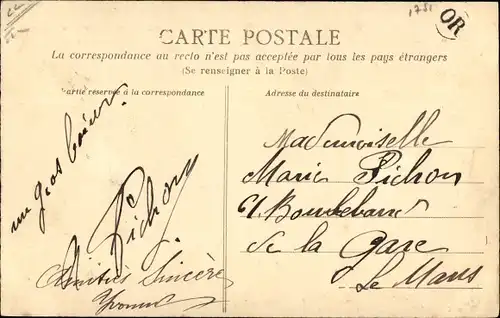 1781
OR
CARTE POSTALE
La correspondance au recto n'est pas acceptée par tous les pays étrangers
(Se renseigner à la Poste)
Partie reservée à la correspondance
un gros baiser
Pichon
Amitiés Sincère
Yvonne
Adresse du destinataire
Mademoiselle
Marie Pichon
de la Gare
Le Mans